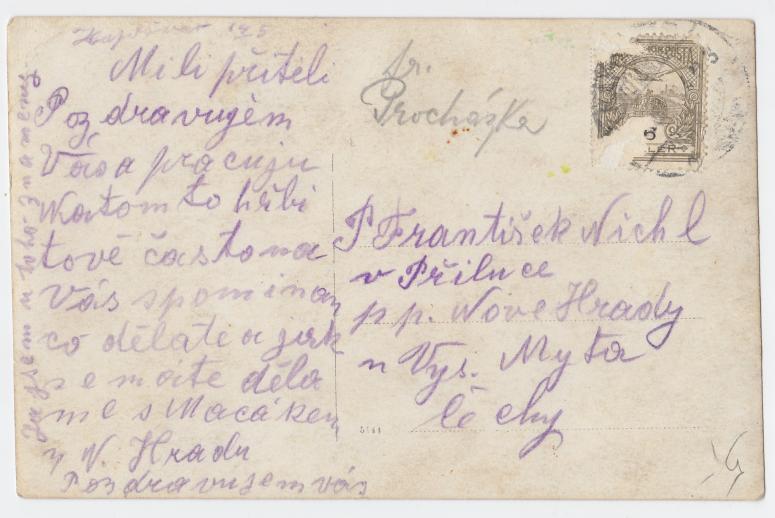 Mili příteli
Pozdravujem
Vás a pracuju
Na tom to hřbi
tově často na
Vás spominan
co dělate a jak
se máte děla
me s Macákem
z N. Hradu
Pozdravujem vás
Ja jsem u toho znameny
fr.
Procházka
P František Nichl
v Příluce
p p. Nové Hrady
n Vys. Myta
Čechy
5
LER
5161